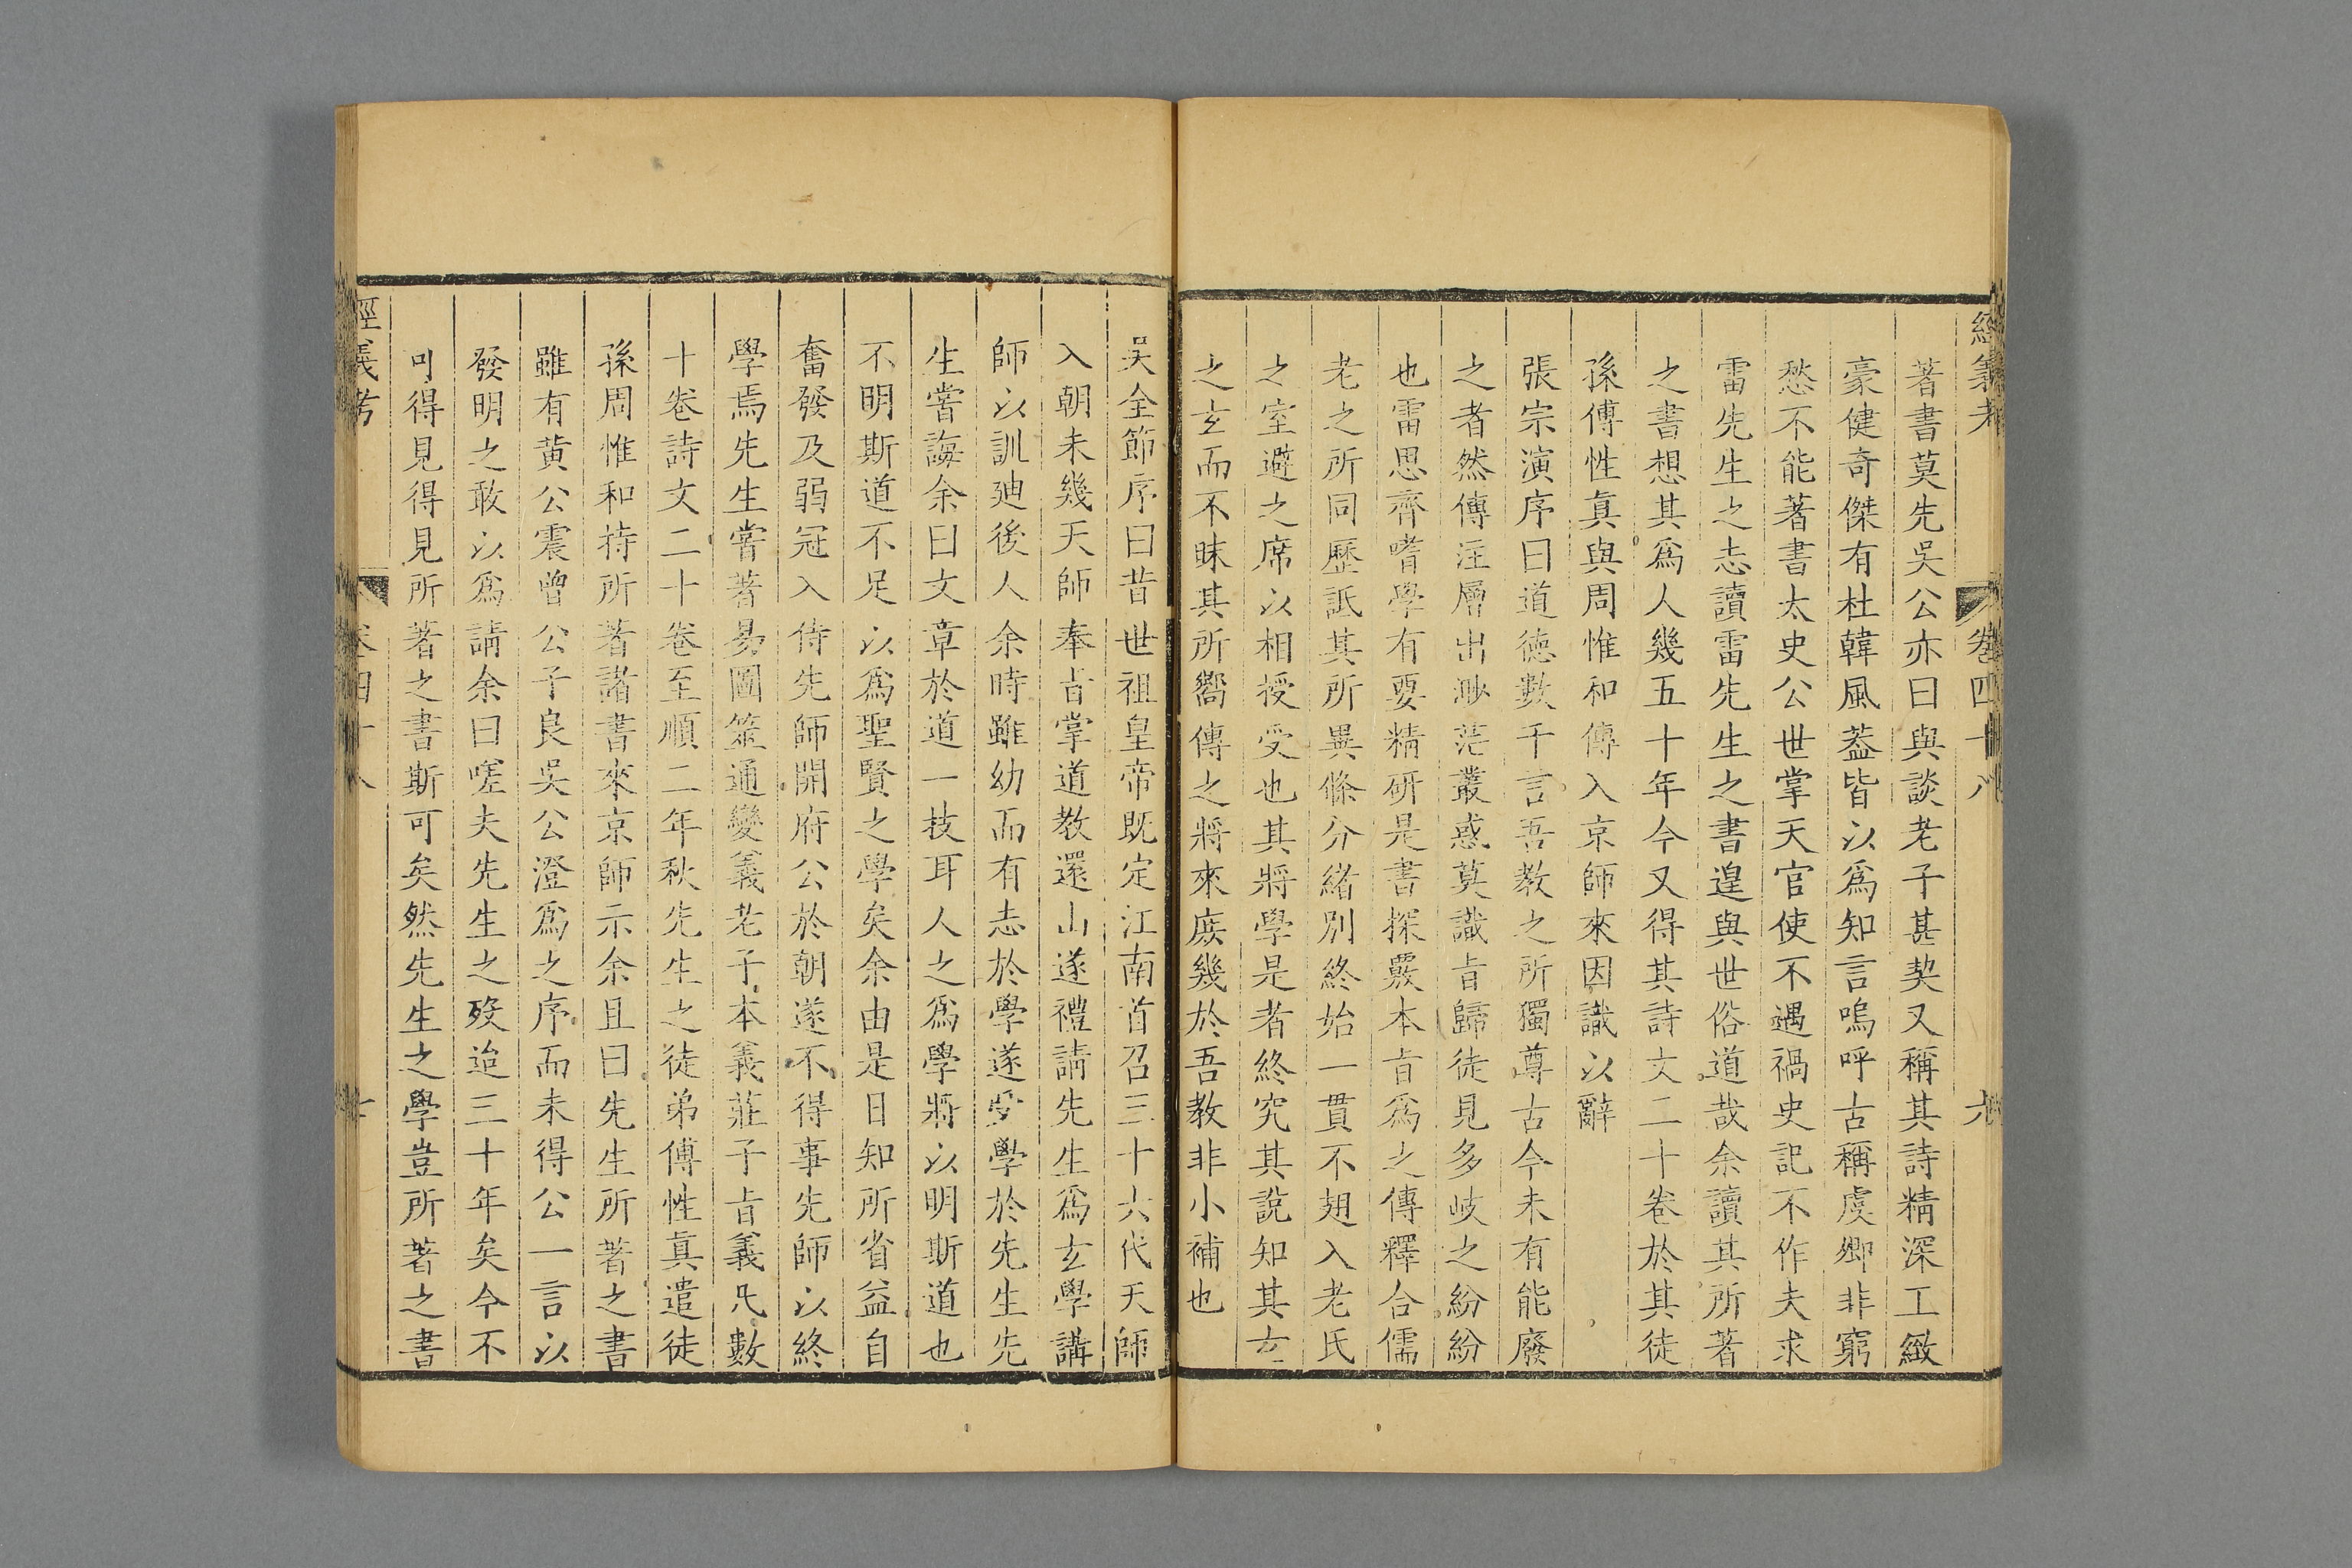 經義考 卷四十八 九
著書莫先吳公亦曰與談老子甚契又稱其詩精深工緻
豪健奇傑有杜韓風葢皆以爲知言嗚呼古稱虞卿非窮
愁不能著書太史公世掌天官使不遇禍史記不作夫求
雷先生之志讀雷先生之書遑與世俗道哉余讀其所著
之書想其爲人幾五十年今又得其詩文二十卷於其徒
孫傅性眞與周惟和傳入京師來因識以辭
張宗演序曰道德數千言吾教之所獨尊古今未有能廢
之者然傳注層出渺茫叢惑莫識㫖歸徒見多岐之紛紛
也雷思齊嗜學有要精研是書探覈本㫖爲之傳釋合儒
老之所同歷詆其所異條分緒別終始一貫不翅入老氏
之室避之席以相授受也其將學是者終究其說知其玄
之玄而不昧其所嚮傳之將來庶幾於吾教非小補也
吳全節序曰昔世祖皇帝既定江南首召三十六代天師
入朝未幾天師奉㫖掌道教還山遂禮請先生爲玄學講
師以訓廸後人余時雖幼而有志於學遂受學於先生先
生嘗誨余曰文章於道一技耳人之爲學將以明斯道也
不明斯道不足以爲聖賢之學矣余由是日知所省益自
奮發及弱冠入侍先師開府公於朝遂不得事先師以終
學焉先生嘗著易圖筮通變義老子本義莊子㫖義凡數
十卷詩文二十卷至順二年秋先生之徒弟傅性眞遣徒
孫周惟和持所著諸書來京師示余且曰先生所著之書
雖有黃公震曾公子良吳公澄爲之序而未得公一言以
發明之敢以爲請余曰嗟夫先生之歿迨三十年矣今不
可得見得見所著之書斯可矣然先生之學豈所著之書
經義考 卷四十八